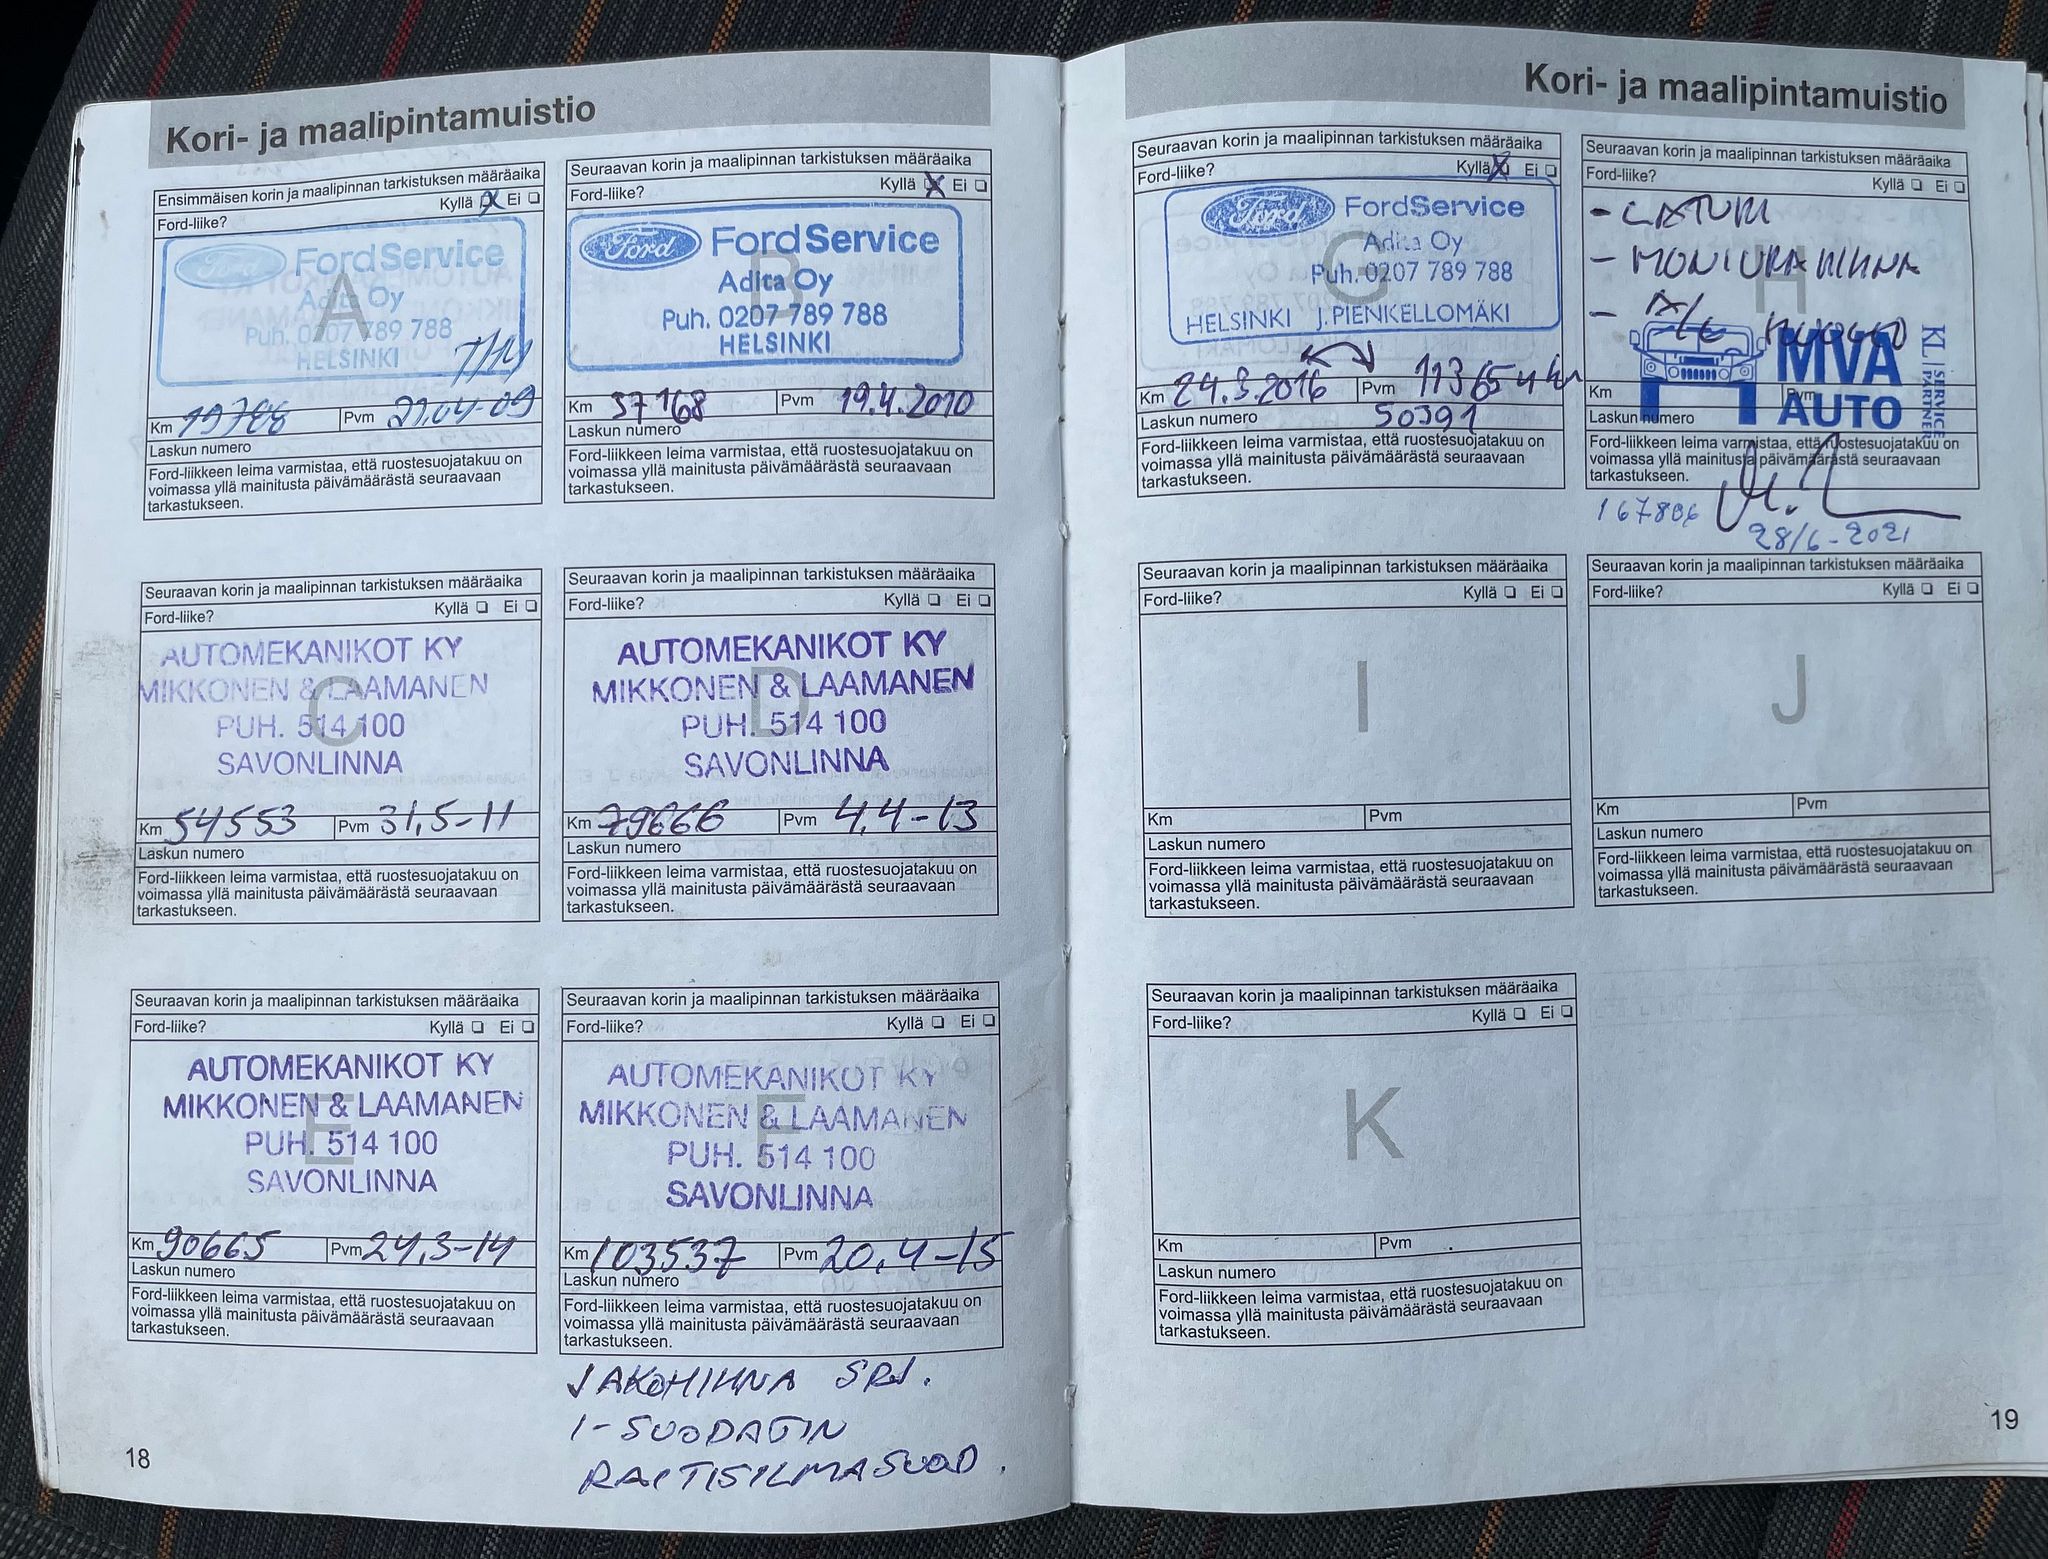 Kori- ja maalipintamuistio
Ensimmäisen korin ja maalipinnan tarkistuksen määräaika
Ford-liike? Kyllä Ei
A
Ford FordService
Adita Oy
Puh. 0207 789 788
HELSINKI
Km 19786 Pvm 21.04-09
Laskun numero
Ford-liikkeen leima varmistaa, että ruostesuojatakuu on
voimassa yllä mainitusta päivämäärästä seuraavaan
tarkastukseen.
Seuraavan korin ja maalipinnan tarkistuksen määräaika
Ford-liike? Kyllä Ei
B
Ford FordService
Adita Oy
Puh. 0207 789 788
HELSINKI
Km 37168 Pvm 19.4.2010
Laskun numero
Ford-liikkeen leima varmistaa, että ruostesuojatakuu on
voimassa yllä mainitusta päivämäärästä seuraavaan
tarkastukseen.
Seuraavan korin ja maalipinnan tarkistuksen määräaika
Ford-liike? Kyllä Ei
C
AUTOMEKANIKOT KY
MIKKONEN & LAAMANEN
PUH. 514 100
SAVONLINNA
Km 54553 Pvm 31,5-11
Laskun numero
Ford-liikkeen leima varmistaa, että ruostesuojatakuu on
voimassa yllä mainitusta päivämäärästä seuraavaan
tarkastukseen.
Seuraavan korin ja maalipinnan tarkistuksen määräaika
Ford-liike? Kyllä Ei
D
AUTOMEKANIKOT KY
MIKKONEN & LAAMANEN
PUH. 514 100
SAVONLINNA
Km 79666 Pvm 4,4-13
Laskun numero
Ford-liikkeen leima varmistaa, että ruostesuojatakuu on
voimassa yllä mainitusta päivämäärästä seuraavaan
tarkastukseen.
Seuraavan korin ja maalipinnan tarkistuksen määräaika
Ford-liike? Kyllä Ei
E
AUTOMEKANIKOT KY
MIKKONEN & LAAMANEN
PUH. 514 100
SAVONLINNA
Km 90665 Pvm 24,3-14
Laskun numero
Ford-liikkeen leima varmistaa, että ruostesuojatakuu on
voimassa yllä mainitusta päivämäärästä seuraavaan
tarkastukseen.
Seuraavan korin ja maalipinnan tarkistuksen määräaika
Ford-liike? Kyllä Ei
F
AUTOMEKANIKOT KY
MIKKONEN & LAAMANEN
PUH. 514 100
SAVONLINNA
Km 103537 Pvm 20,4-15
Laskun numero
Ford-liikkeen leima varmistaa, että ruostesuojatakuu on
voimassa yllä mainitusta päivämäärästä seuraavaan
tarkastukseen.
JAKOHIHNA SRJ.
I-SUODATIN
RAITISILMASUOD.
18
Kori- ja maalipintamuistio
Seuraavan korin ja maalipinnan tarkistuksen määräaika
Ford-liike? Kyllä Ei
G
Ford FordService
Adita Oy
Puh. 0207 789 788
HELSINKI J.PIENKELLOMÄKI
Km 24.3.2016 Pvm 113654 km
Laskun numero 50391
Ford-liikkeen leima varmistaa, että ruostesuojatakuu on
voimassa yllä mainitusta päivämäärästä seuraavaan
tarkastukseen.
Seuraavan korin ja maalipinnan tarkistuksen määräaika
Ford-liike? Kyllä Ei
H
- LATURI
- MONIURAHIHNA
- A/C HUOLTO
MVA
AUTO
KL SERVICE
PARTNER
Km Pvm
Laskun numero
Ford-liikkeen leima varmistaa, että ruostesuojatakuu on
voimassa yllä mainitusta päivämäärästä seuraavaan
tarkastukseen.
167806
28/6-2021
Seuraavan korin ja maalipinnan tarkistuksen määräaika
Ford-liike? Kyllä Ei
I
Km Pvm
Laskun numero
Ford-liikkeen leima varmistaa, että ruostesuojatakuu on
voimassa yllä mainitusta päivämäärästä seuraavaan
tarkastukseen.
Seuraavan korin ja maalipinnan tarkistuksen määräaika
Ford-liike? Kyllä Ei
J
Km Pvm
Laskun numero
Ford-liikkeen leima varmistaa, että ruostesuojatakuu on
voimassa yllä mainitusta päivämäärästä seuraavaan
tarkastukseen.
Seuraavan korin ja maalipinnan tarkistuksen määräaika
Ford-liike? Kyllä Ei
K
Km Pvm
Laskun numero
Ford-liikkeen leima varmistaa, että ruostesuojatakuu on
voimassa yllä mainitusta päivämäärästä seuraavaan
tarkastukseen.
19